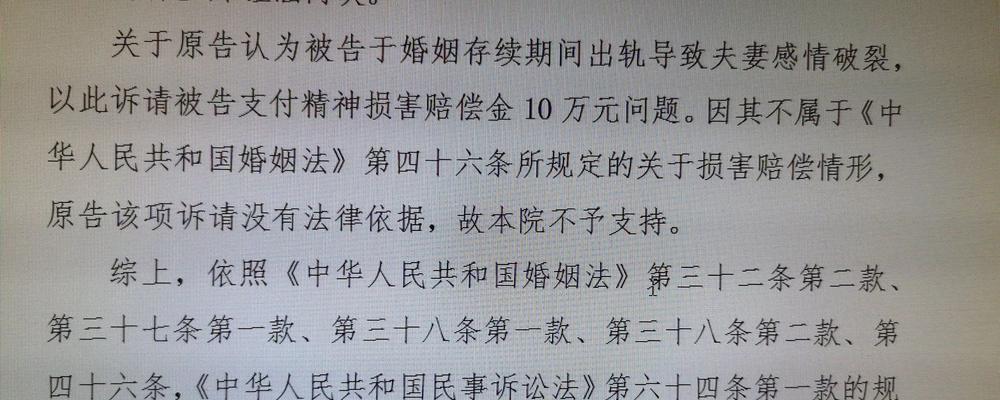 关于原告认为被告于婚姻存续期间出轨导致夫妻感情破裂，
以此诉请被告支付精神损害赔偿金 10 万元问题。因其不属于《中
华人民共和国婚姻法》第四十六条所规定的关于损害赔偿情形，
原告该项诉请没有法律依据，故本院不予支持。
综上，依照《中华人民共和国婚姻法》第三十二条第二款、
第三十七条第一款、第三十八条第一款、第三十八条第二款、第
四十六条，《中华人民共和国民事诉讼法》第六十四条第一款的规